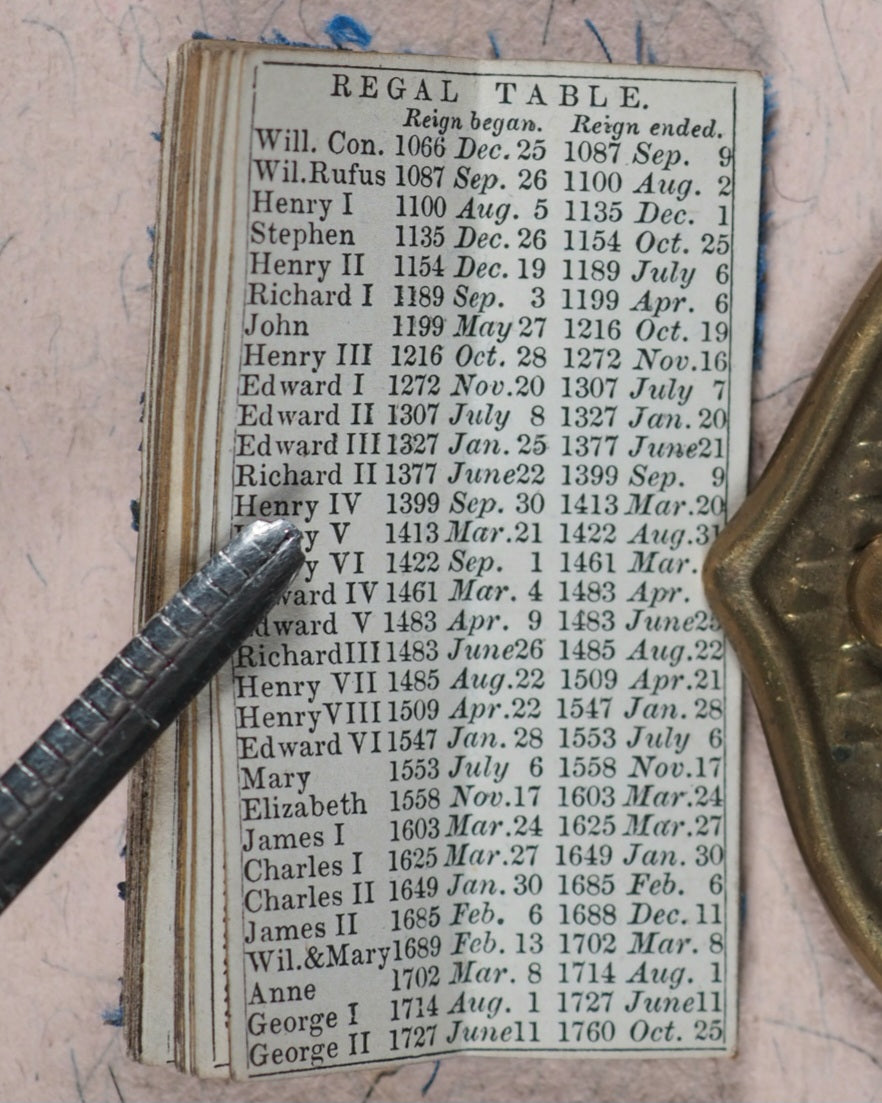 REGAL TABLE.
Reign began. Reign ended.
Will. Con. 1066 Dec. 25 1087 Sep. 9
Wil.Rufus 1087 Sep. 26 1100 Aug. 2
Henry I 1100 Aug. 5 1135 Dec. 1
Stephen 1135 Dec. 26 1154 Oct. 25
Henry II 1154 Dec. 19 1189 July 6
Richard I 1189 Sep. 3 1199 Apr. 6
John 1199 May 27 1216 Oct. 19
Henry III 1216 Oct. 28 1272 Nov.16
Edward I 1272 Nov.20 1307 July 7
Edward II 1307 July 8 1327 Jan. 20
Edward III 1327 Jan. 25 1377 June21
Richard II 1377 June22 1399 Sep. 9
Henry IV 1399 Sep. 30 1413 Mar.20
V 1413 Mar.21 1422 Aug.31
VI 1422 Sep. 1 1461 Mar.
IV 1461 Mar. 4 1483 Apr.
Edward V 1483 Apr. 9 1483 June
RichardIII 1483 June26 1485 Aug.22
Henry VII 1485 Aug.22 1509 Apr.21
HenryVIII 1509 Apr.22 1547 Jan. 28
Edward VI 1547 Jan. 28 1553 July 6
Mary 1553 July 6 1558 Nov.17
Elizabeth 1558 Nov.17 1603 Mar.24
James I 1603 Mar.24 1625 Mar.27
Charles I 1625 Mar.27 1649 Jan. 30
Charles II 1649 Jan. 30 1685 Feb. 6
James II 1685 Feb. 6 1688 Dec. 11
Wil.&Mary 1689 Feb. 13 1702 Mar. 8
Anne 1702 Mar. 8 1714 Aug. 1
George I 1714 Aug. 1 1727 June11
George II 1727 June11 1760 Oct. 25